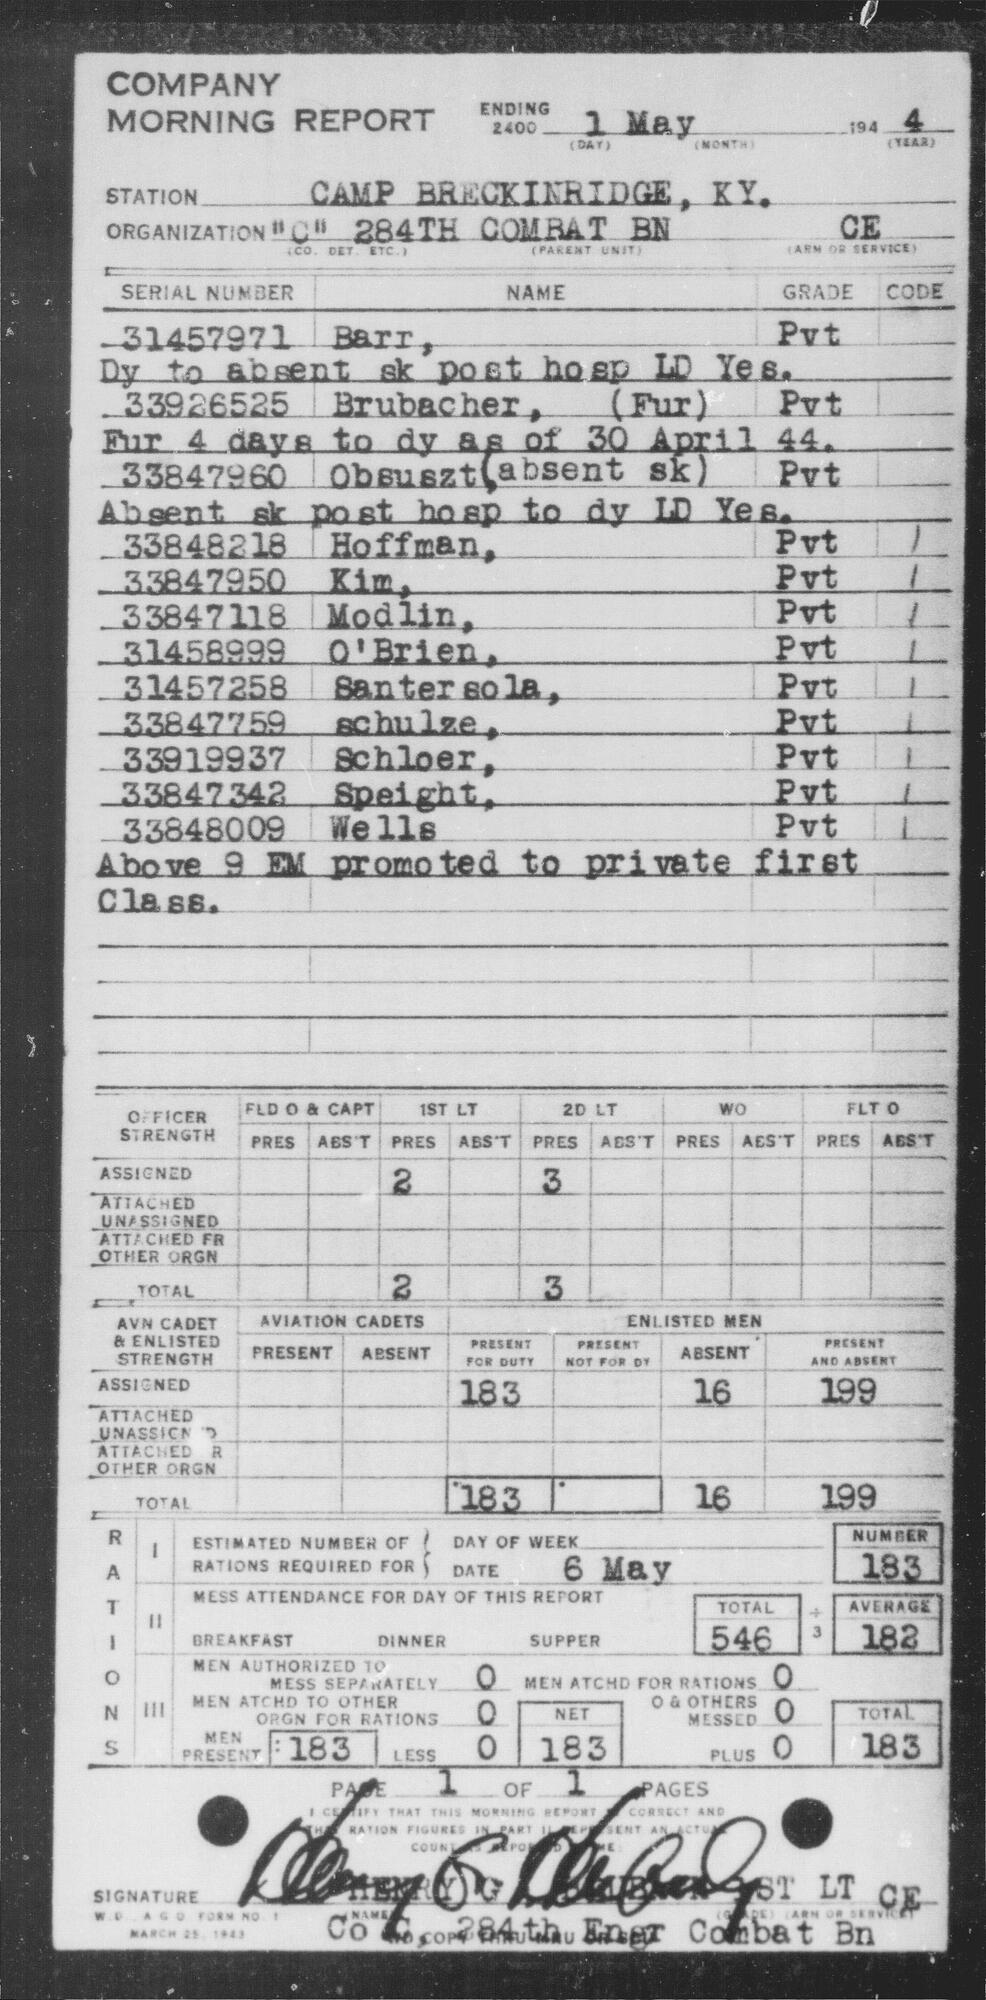 COMPANY
MORNING REPORT ENDING 2400 1 May 194 4
(DAY) (MONTH) (YEAR)
STATION CAMP BRECKINRIDGE, KY.
ORGANIZATION "C" 284TH COMBAT BN CE
(CO. DET. ETC.) (PARENT UNIT) (ARM OR SERVICE)
SERIAL NUMBER NAME GRADE CODE
31457971 Barr, Pvt
Dy to absent sk post hosp LD Yes.
33926525 Brubacher, (Fur) Pvt
Fur 4 days to dy as of 30 April 44.
33847960 Obsuszt(absent sk) Pvt
Absent sk post hosp to dy LD Yes.
33848218 Hoffman, Pvt /
33847950 Kim, Pvt /
33847118 Modlin, Pvt /
31458999 O'Brien, Pvt /
31457258 Santersola, Pvt /
33847759 schulze, Pvt /
33919937 Schloer, Pvt /
33847342 Speight, Pvt /
33848009 Wells Pvt /
Above 9 EM promoted to private first
Class.
OFFICER STRENGTH FLD O & CAPT 1ST LT 2D LT WO FLT O
PRES ABS'T PRES ABS'T PRES ABS'T PRES ABS'T PRES ABS'T
ASSIGNED 2 3
ATTACHED UNASSIGNED
ATTACHED FR OTHER ORGN
TOTAL 2 3
AVN CADET & ENLISTED STRENGTH AVIATION CADETS ENLISTED MEN
PRESENT ABSENT PRESENT FOR DUTY PRESENT NOT FOR DY ABSENT PRESENT AND ABSENT
ASSIGNED 183 16 199
ATTACHED
ATTACHED R
OTHER ORGN
TOTAL 183 16 199
RATIONS
I ESTIMATED NUMBER OF RATIONS REQUIRED FOR DAY OF WEEK NUMBER
DATE 6 May 183
II MESS ATTENDANCE FOR DAY OF THIS REPORT TOTAL AVERAGE
BREAKFAST DINNER SUPPER 546 ÷ 3 182
III MEN AUTHORIZED TO MESS SEPARATELY 0 MEN ATCHD FOR RATIONS 0
MEN ATCHD TO OTHER ORGN FOR RATIONS 0 NET O & OTHERS MESSED 0 TOTAL
MEN PRESENT 183 LESS 0 183 PLUS 0 183
PAGE 1 OF 1 PAGES
I CERTIFY THAT THIS MORNING REPORT CORRECT AND
RATION FIGURES IN PART II AN ACTUAL
SIGNATURE HENRY G ST LT CE
W.D., A.G.O. FORM NO. 1 (NAME) (GRADE) (ARM OR SERVICE)
MARCH 25, 1943 Co C, 284th Engr Combat Bn